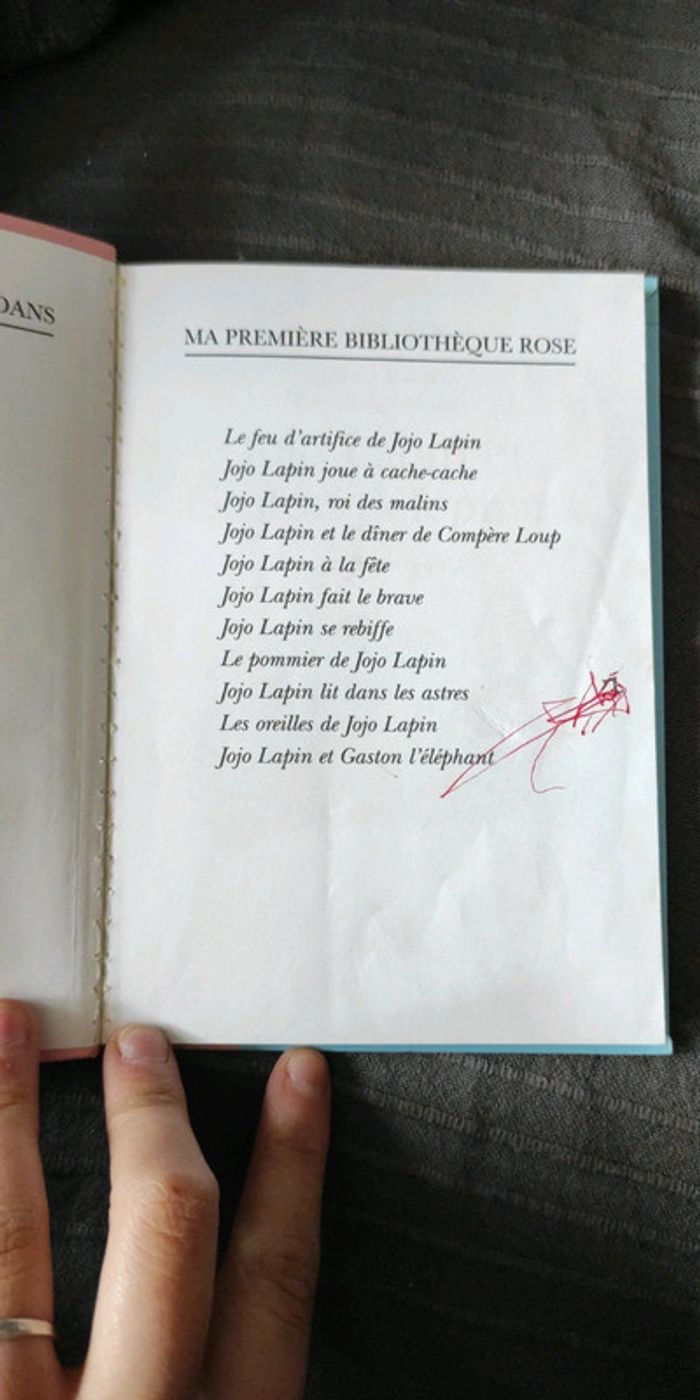 DANS
MA PREMIÈRE BIBLIOTHÈQUE ROSE
Le feu d'artifice de Jojo Lapin
Jojo Lapin joue à cache-cache
Jojo Lapin, roi des malins
Jojo Lapin et le dîner de Compère Loup
Jojo Lapin à la fête
Jojo Lapin fait le brave
Jojo Lapin se rebiffe
Le pommier de Jojo Lapin
Jojo Lapin lit dans les astres
Les oreilles de Jojo Lapin
Jojo Lapin et Gaston l'éléphant